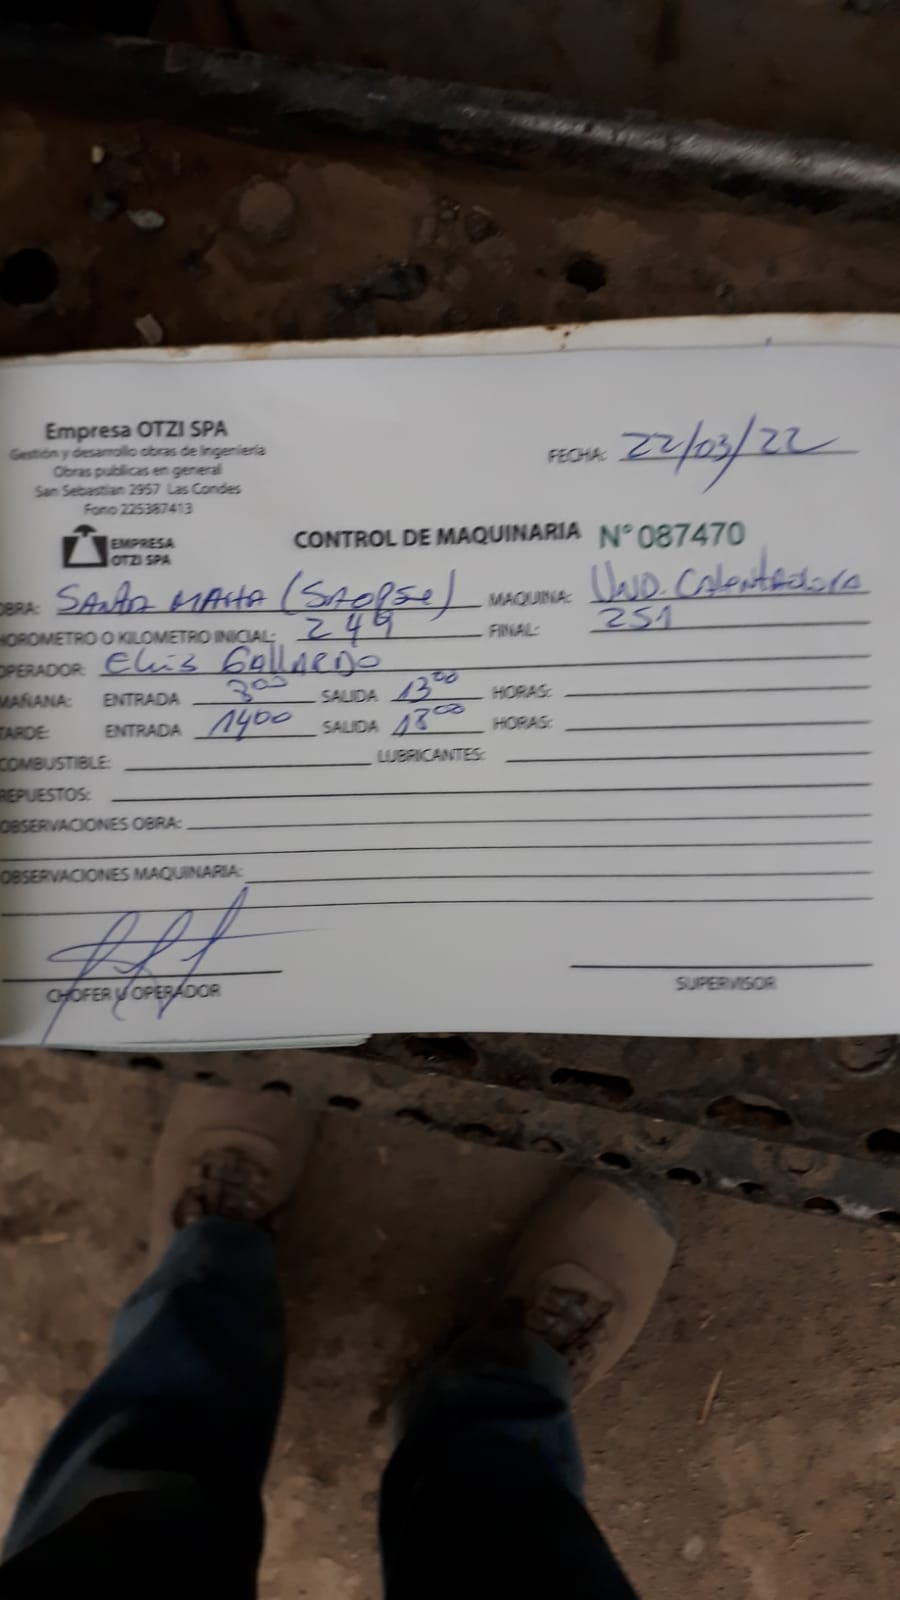 Empresa OTZI SPA
Gestión y desarrollo obras de Ingeniería
Obras publicas en general
San Sebastian 2957 Las Condes
Fono 225387413
FECHA: 22/03/22
EMPRESA
OTZI SPA
CONTROL DE MAQUINARIA N° 087470
OBRA: SANTA MARTA MAQUINA: UND. Calentadora
HOROMETRO O KILOMETRO INICIAL: 249 FINAL: 251
OPERADOR: GALLARDO
MAÑANA: ENTRADA 800 SALIDA 1300 HORAS:
TARDE: ENTRADA 1400 SALIDA HORAS:
COMBUSTIBLE: LUBRICANTES:
REPUESTOS:
OBSERVACIONES OBRA:
OBSERVACIONES MAQUINARIA:
CHOFER U OPERADOR SUPERVISOR